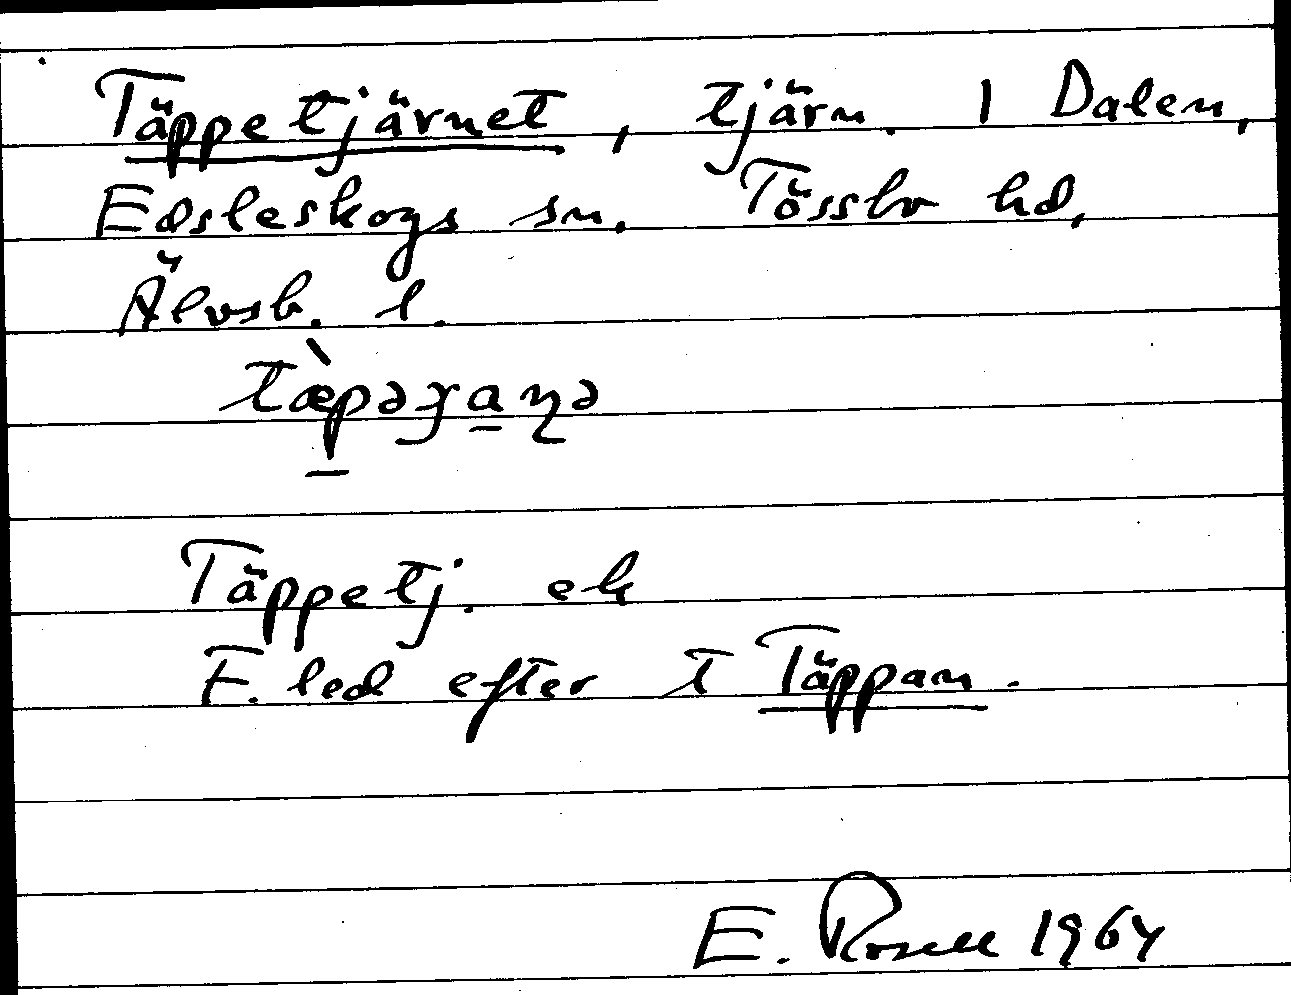 Täppetjärnet, tjärn. 1 Dalen,
Edsleskogs sn. Tössbo hd,
Älvsb. l.
Täppetj. ek
F. led efter t Täppan.
E. Rosell 1964